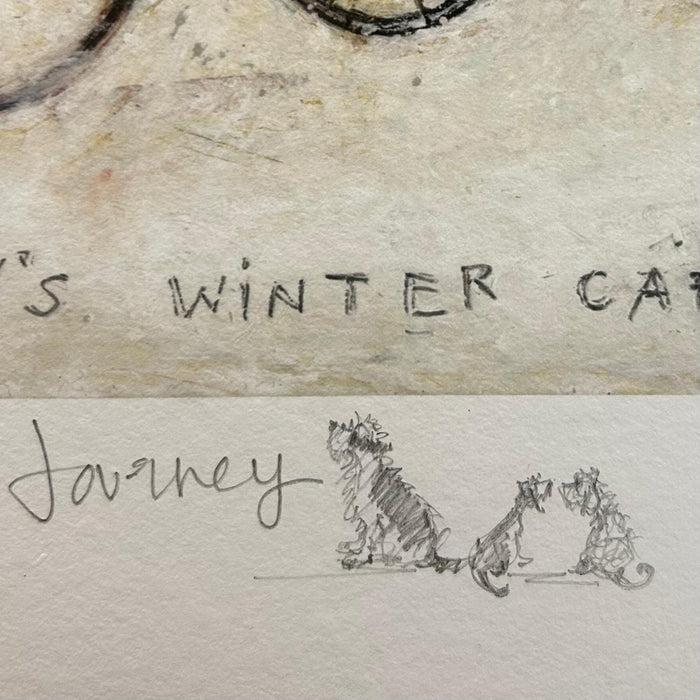 'S WiNTER CAF
Journey